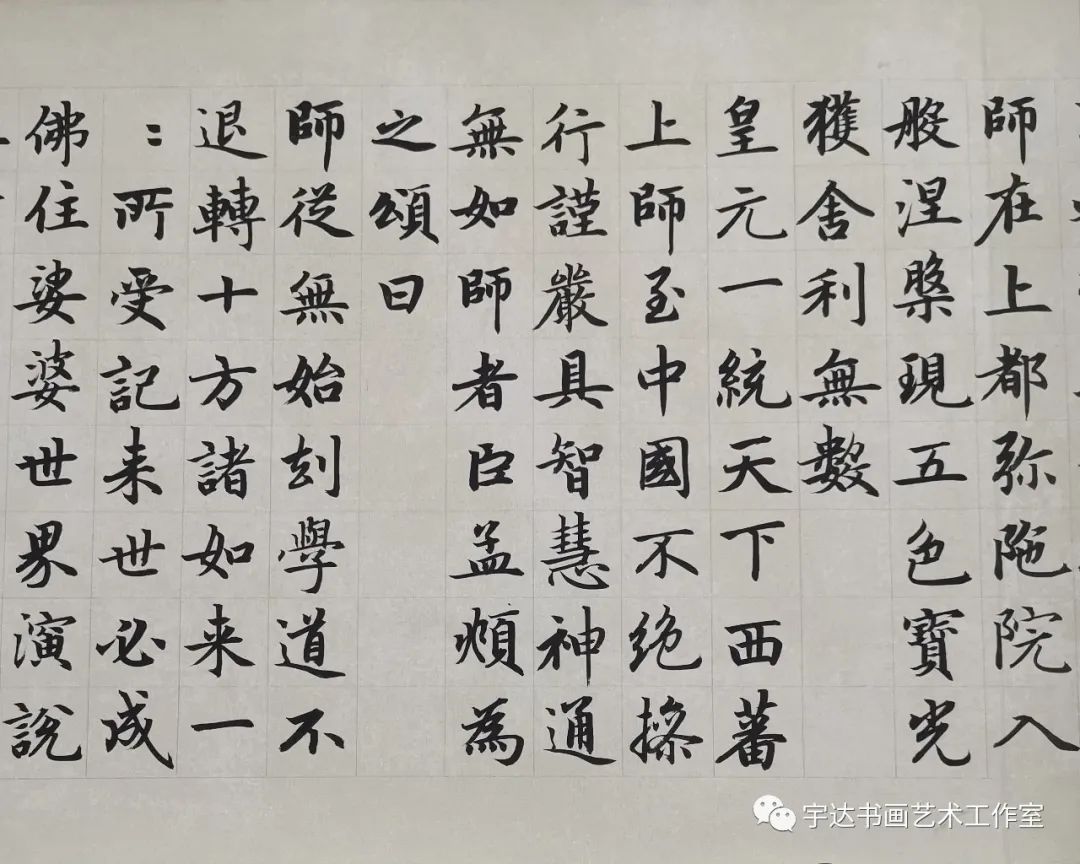 師在上都弥陁院入
般涅槃現五色寶光
獲舍利無數
皇元一統天下西蕃
上師至中國不絶操
行謹嚴具智慧神通
無如師者臣孟頫為
之頌曰
師從無始刦學道不
退轉十方諸如来一
〻所受記来世必成
佛住娑婆世界演說
宇达书画艺术工作室